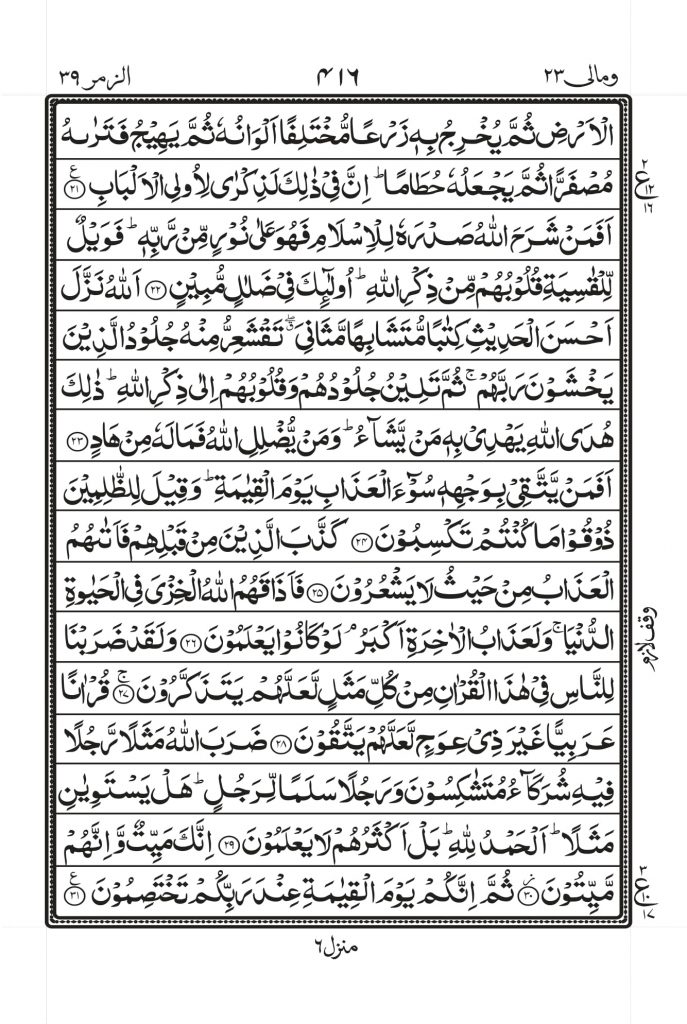 الزمر ٣٩ ٤١٦ ومالی ٢٣
الۡاَرۡضِ ثُمَّ يُخۡرِجُ بِهٖ زَرۡعًا مُّخۡتَلِفًا اَلۡوَانُهٗ ثُمَّ يَهِيۡجُ فَتَرٰىهُ
مُصۡفَرًّا ثُمَّ يَجۡعَلُهٗ حُطَامًا ؕ اِنَّ فِىۡ ذٰلِكَ لَذِكۡرٰى لِاُولِى الۡاَلۡبَابِ ﴿٢١﴾ ع
٢ ع ١٢ ١٦
اَفَمَنۡ شَرَحَ اللّٰهُ صَدۡرَهٗ لِلۡاِسۡلَامِ فَهُوَ عَلٰى نُوۡرٍ مِّنۡ رَّبِّهٖ ؕ فَوَيۡلٌ
لِّلۡقٰسِيَةِ قُلُوۡبُهُمۡ مِّنۡ ذِكۡرِ اللّٰهِ ؕ اُولٰٓئِكَ فِىۡ ضَلٰلٍ مُّبِيۡنٍ ﴿٢٢﴾ اَللّٰهُ نَزَّلَ
اَحۡسَنَ الۡحَدِيۡثِ كِتٰبًا مُّتَشَابِهًا مَّثَانِىَ ۖ ق تَقۡشَعِرُّ مِنۡهُ جُلُوۡدُ الَّذِيۡنَ
يَخۡشَوۡنَ رَبَّهُمۡ ۚ ثُمَّ تَلِيۡنُ جُلُوۡدُهُمۡ وَقُلُوۡبُهُمۡ اِلٰى ذِكۡرِ اللّٰهِ ؕ ذٰلِكَ
هُدَى اللّٰهِ يَهۡدِىۡ بِهٖ مَنۡ يَّشَآءُ ؕ وَمَنۡ يُّضۡلِلِ اللّٰهُ فَمَا لَهٗ مِنۡ هَادٍ ﴿٢٣﴾
اَفَمَنۡ يَّتَّقِىۡ بِوَجۡهِهٖ سُوۡٓءَ الۡعَذَابِ يَوۡمَ الۡقِيٰمَةِ ؕ وَقِيۡلَ لِلظّٰلِمِيۡنَ
ذُوۡقُوۡا مَا كُنۡتُمۡ تَكۡسِبُوۡنَ ﴿٢٤﴾ كَذَّبَ الَّذِيۡنَ مِنۡ قَبۡلِهِمۡ فَاَتٰٮهُمُ
الۡعَذَابُ مِنۡ حَيۡثُ لَا يَشۡعُرُوۡنَ ﴿٢٥﴾ فَاَذَاقَهُمُ اللّٰهُ الۡخِزۡىَ فِى الۡحَيٰوةِ
الدُّنۡيَا ۚ وَلَعَذَابُ الۡاٰخِرَةِ اَكۡبَرُ ۘ لَوۡ كَانُوۡا يَعۡلَمُوۡنَ ﴿٢٦﴾ وَلَقَدۡ ضَرَبۡنَا
وقف لازم
لِلنَّاسِ فِىۡ هٰذَا الۡقُرۡاٰنِ مِنۡ كُلِّ مَثَلٍ لَّعَلَّهُمۡ يَتَذَكَّرُوۡنَ ۚ ﴿٢٧﴾ قُرۡاٰنًا
عَرَبِيًّا غَيۡرَ ذِىۡ عِوَجٍ لَّعَلَّهُمۡ يَتَّقُوۡنَ ﴿٢٨﴾ ضَرَبَ اللّٰهُ مَثَلًا رَّجُلًا
فِيۡهِ شُرَكَآءُ مُتَشٰكِسُوۡنَ وَرَجُلًا سَلَمًا لِّرَجُلٍ ؕ هَلۡ يَسۡتَوِيٰنِ
مَثَلًا ؕ اَلۡحَمۡدُ لِلّٰهِ ؕ بَلۡ اَكۡثَرُهُمۡ لَا يَعۡلَمُوۡنَ ﴿٢٩﴾ اِنَّكَ مَيِّتٌ وَّاِنَّهُمۡ
مَّيِّتُوۡنَ ﴿٣٠﴾ ز ثُمَّ اِنَّكُمۡ يَوۡمَ الۡقِيٰمَةِ عِنۡدَ رَبِّكُمۡ تَخۡتَصِمُوۡنَ ﴿٣١﴾ ع
٣ ع ١٠ ١٧
منزل ٦